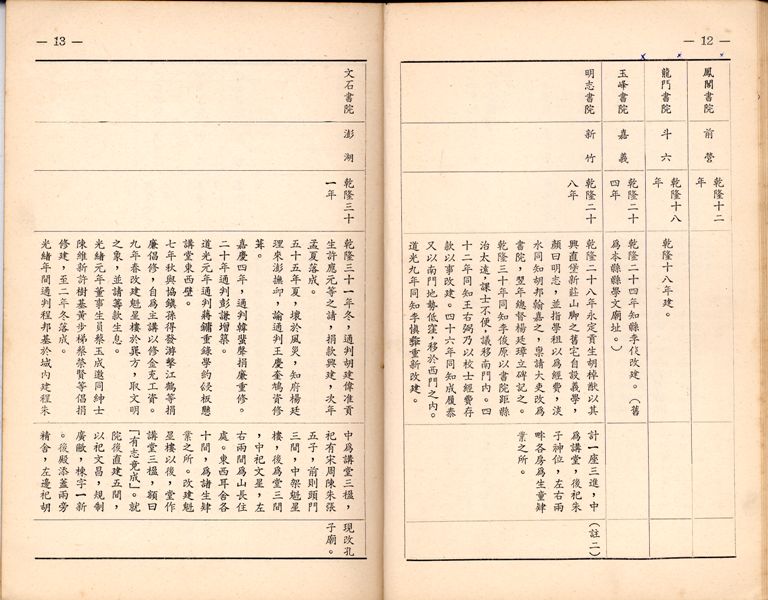 — 12 —
鳳閣書院
前營
乾隆十二
年
龍門書院
斗六
乾隆十八
年
乾隆十八年建。
玉峰書院
嘉義
乾隆二十
四年
乾隆二十四年知縣李倓改建。（舊
爲本縣縣學文廟址。）
明志書院
新竹
乾隆二十
八年
乾隆二十八年永定貢生胡焯猷以其
興直堡新莊山脚之舊宅自設義學，
顏曰明志，並指學租以爲經費，淡
水同知胡邦翰嘉之，稟請大吏改爲
書院，翌年總督楊廷璋立碑記之。
乾隆三十年同知李俊原以書院距縣
治太遠，課士不便，議移南門內。四
十二年同知王右弼乃以校士經費存
款以事改建。四十六年同知成履泰
又以南門地勢低窪，移於西門之內。
道光九年同知李慎彝重新改建。
計一座三進，中
爲講堂，後祀朱
子神位，左右兩
畔各房爲生童肄
業之所。
（註二）
— 13 —
文石書院
澎湖
乾隆三十
一年
乾隆三十一年冬，通判胡建偉准貢
生許應元等之請，捐款興建，次年
孟夏落成。
五十五年夏，壞於風災，知府楊廷
理來澎撫卹，諭通判王慶奎鳩資修
葺。
嘉慶四年，通判韓蜚聲捐廉重修。
二十年通判彭謙增築。
道光元年通判蔣鏞重錄學約 板懸
講堂東西壁。
七年秋與協鎮孫得發游擊江鶴等捐
廉倡修，自爲主講以修金充工資。
九年春改建魁星樓於巽方，取文明
之象，並請籌款生息。
光緒元年董事生員蔡玉成邀同紳士
陳維新許樹基黃步梯蔡榮賢等倡捐
修建，至二年冬落成。
光緒年間通判程邦基於城內建程朱
中爲講堂三楹，
祀有宋周陳朱張
五子，前則頭門
三間，中架魁星
樓，後爲堂三間
，中祀文星，左
右兩間爲山長住
處。東西耳舍各
十間，爲諸生肄
業之所。改建魁
星樓以後，堂作
講堂三楹，額曰
「有志竟成」。就
院後直建五間，
以祀文昌，規制
廣敞，棟宇一新
。後殿添蓋兩旁
精舍，左邊祀胡
現改孔
子廟。